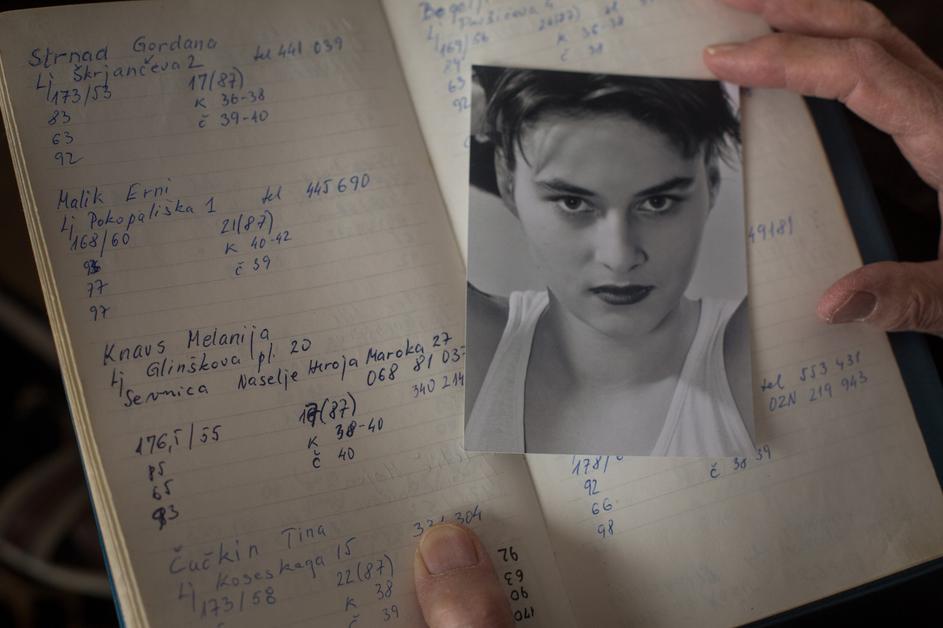 Strnad Gordana tel 441 039
Lj Škrjančeva 2
173/53 17(87)
83 K 36-38
63 č 39-40
92
Malik Erni tel 445 690
Lj Pokopališka 1
168/60 21(87)
K 40-42
77 č 39
97
Knavs Melanija
Lj Glinškova pl. 20
Sevnica Naselje Hroja Maroka 27
068 81 03
340 214
176,5/55 (87)
85 K 38-40
65 č 40
93
Čučkin Tina 304
Lj Koseskega 15
173/58 22(87)
K 38
č 39
92
63
90
170
Lj
169/56 K 36-38
č 38
63
92
49181
tel 553 431
OZN 219 943
178/
92 č 38 39
66
98